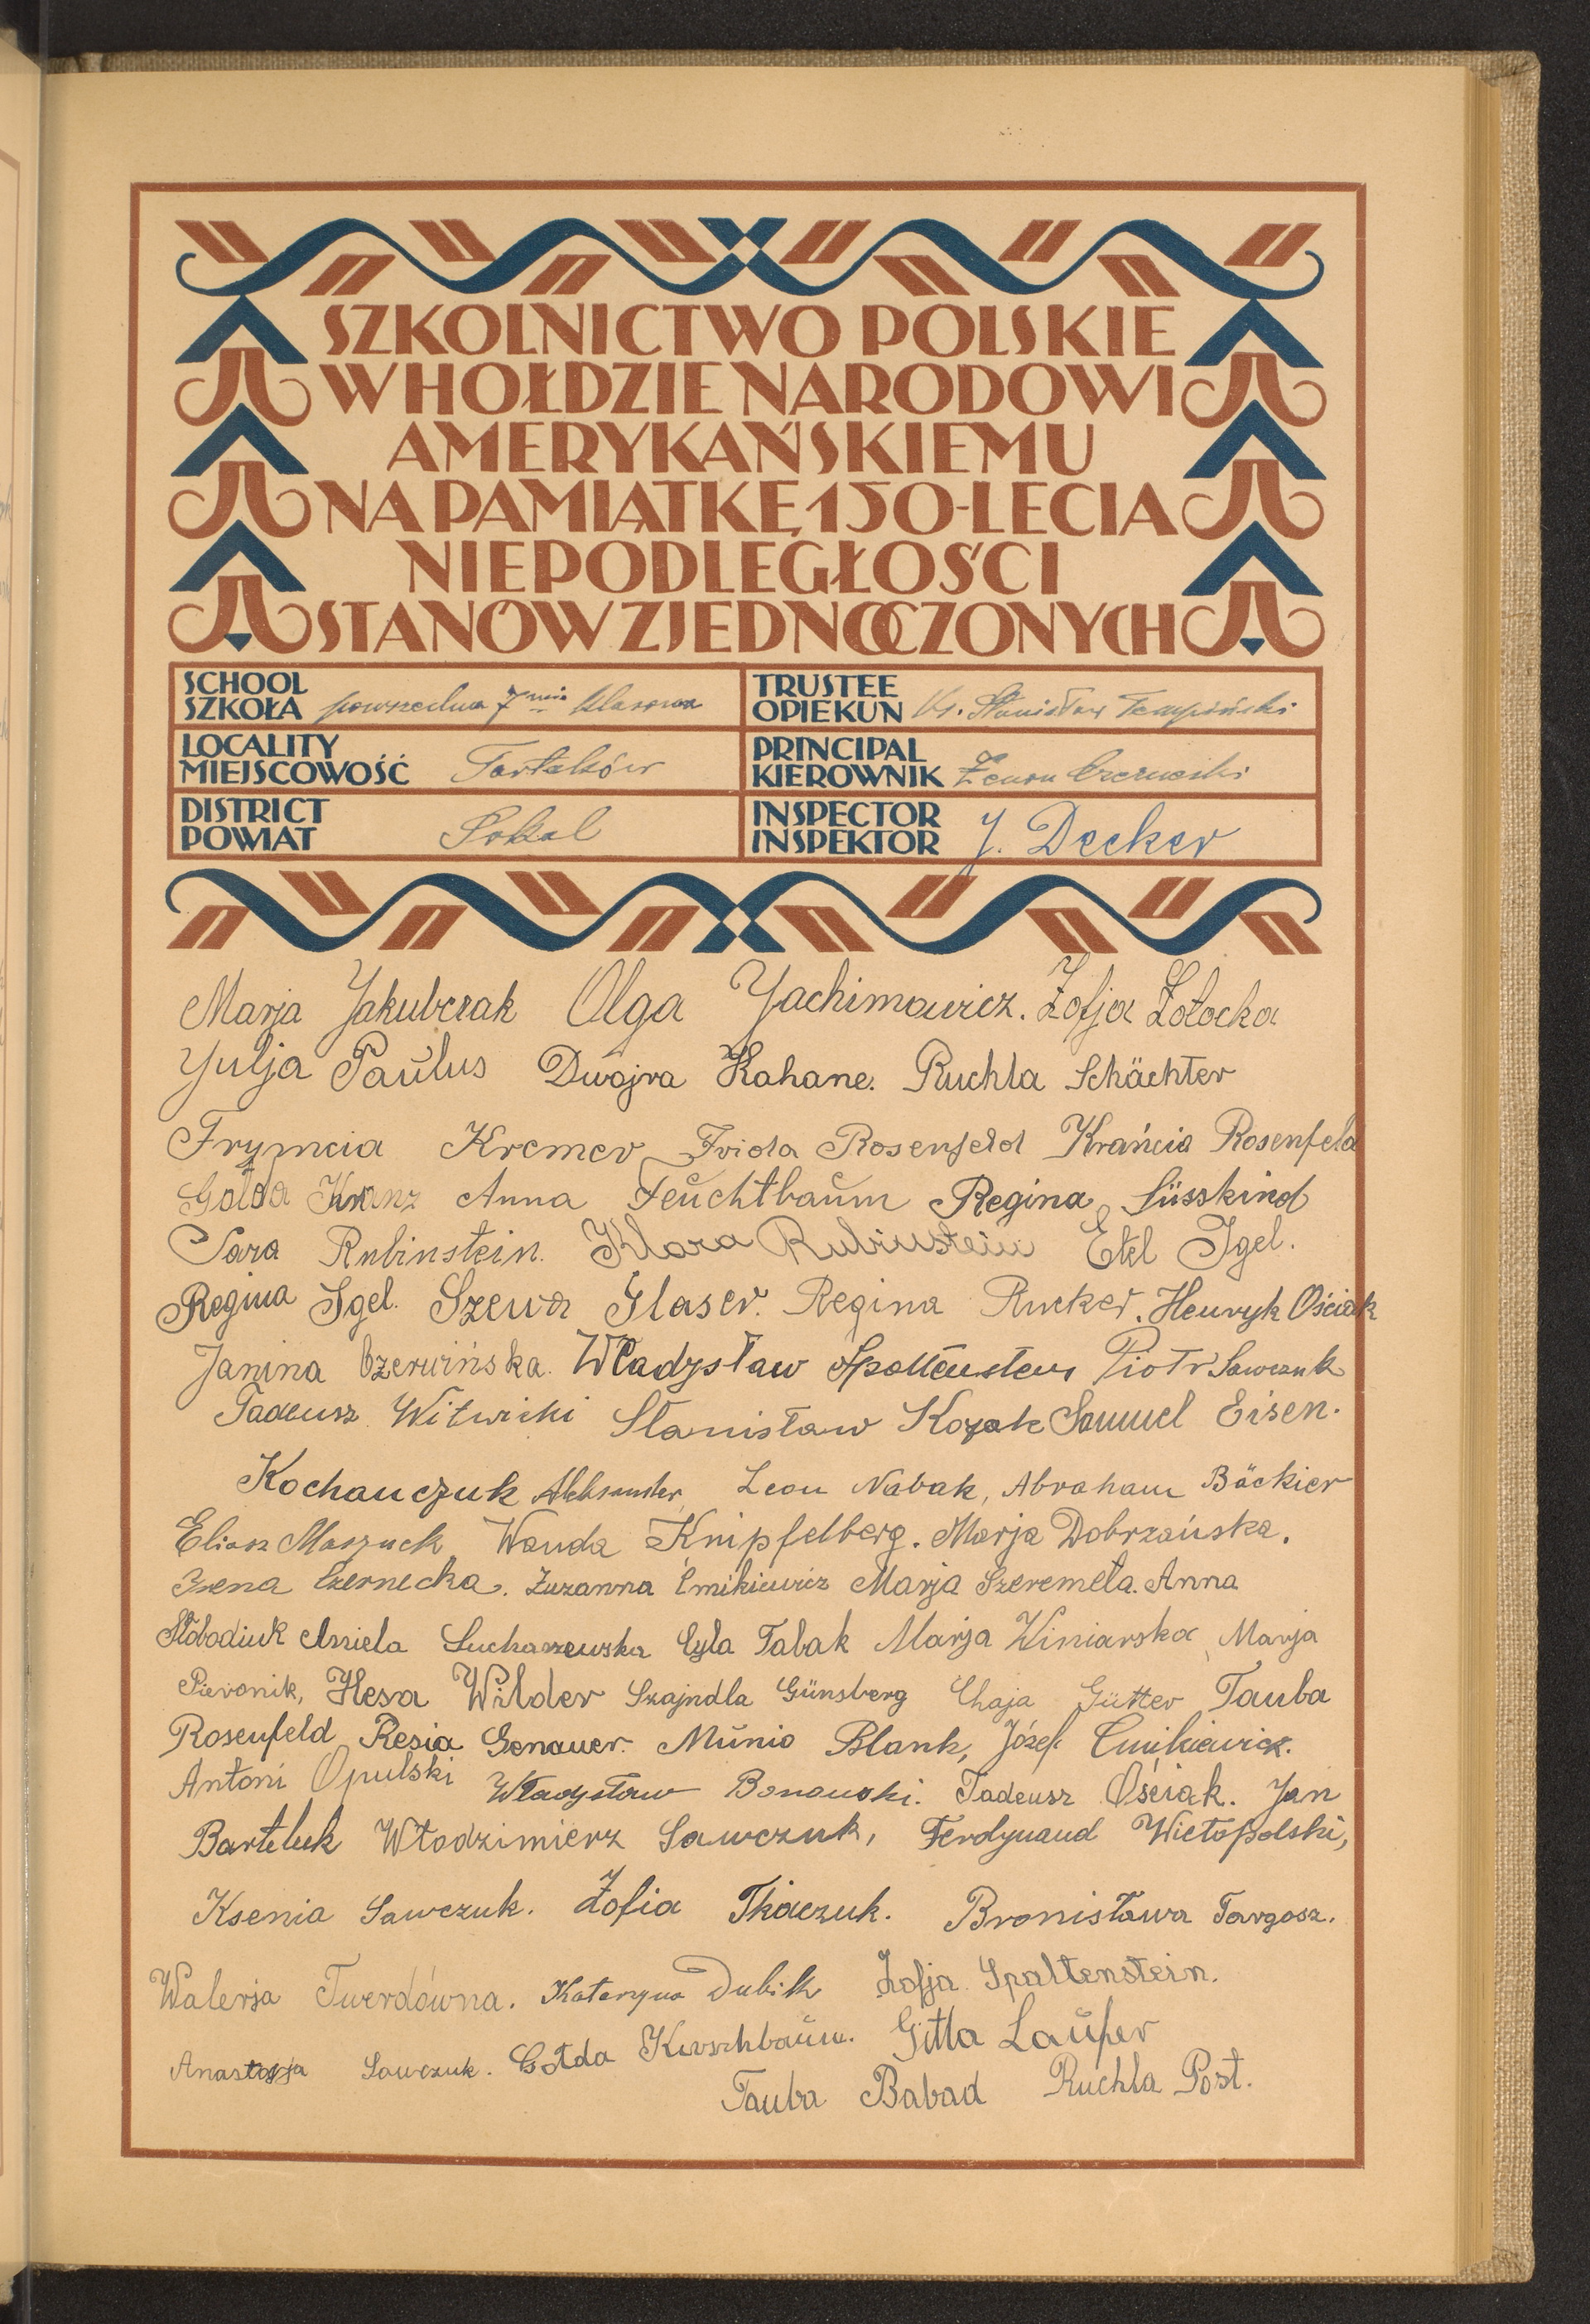 SZKOLNICTWO POLSKIE
W HOŁDZIE NARODOWI
AMERYKAŃSKIEMU
NA PAMIĄTKĘ 150-LECIA
NIEPODLEGŁOŚCI
STANÓW ZJEDNOCZONYCH
SCHOOL
SZKOŁA powszechna 7mio klasowa
TRUSTEE
OPIEKUN Ks. Stanisław
LOCALITY
MIEJSCOWOŚĆ Tartaków
PRINCIPAL
KIEROWNIK Zenon Czernecki
DISTRICT
POWIAT Sokal
INSPECTOR
INSPEKTOR J. Decker
Marja Jakubczak Olga Jachimowicz. Zofja Zołocka
Julja Paŭlus Dwojra Kahane. Ruchla Schächter
Frymcia Kremer Frida Rosenfeld Krańcia Rosenfeld
Gołda Kranz Anna Feŭchtbaŭm Regina Süsskind
Sara Rubinstein. Klara Rubinstein Etel Igel.
Regina Igel. Szewa Glaser. Regina Rucker. Henryk Ościak
Janina Czerwińska. Władysław Piotr Sawczuk
Tadeusz Witwicki Stanisław Kozak Samuel Eisen.
Kochanczuk Aleksander, Leon Nabak, Abraham Bäckier
Eliasz Maszuck Wanda Knipfelberg. Marja Dobrzańska.
Irena Czernecka. Zuzanna Ćmikiewicz Marja Szeremeta. Anna
Słobodiuk Aniela Suchaszewska Cyla Tabak Marja Winiarska, Marja
Pieronik, Hesa Wilder Szajndla Günsberg Chaja Gütter Tauba
Rosenfeld Resia Genauer. Mŭnio Blank, Józef Ćmikiewicz.
Antoni Opulski Władysław Bonowski. Tadeusz Ościak. Jan
Barteluk Włodzimierz Sawczuk, Ferdynand Wielopolski,
Ksenia Sawczuk. Zofia Tkaczuk. Bronisława Targosz.
Walerja Twerdówna. Kataryna Dubik Zofja Spaltenstein.
Anastazja Sawczuk. Gołda Kirschbaŭm. Gitla Laŭfer
Tauba Babad Ruchla Post.